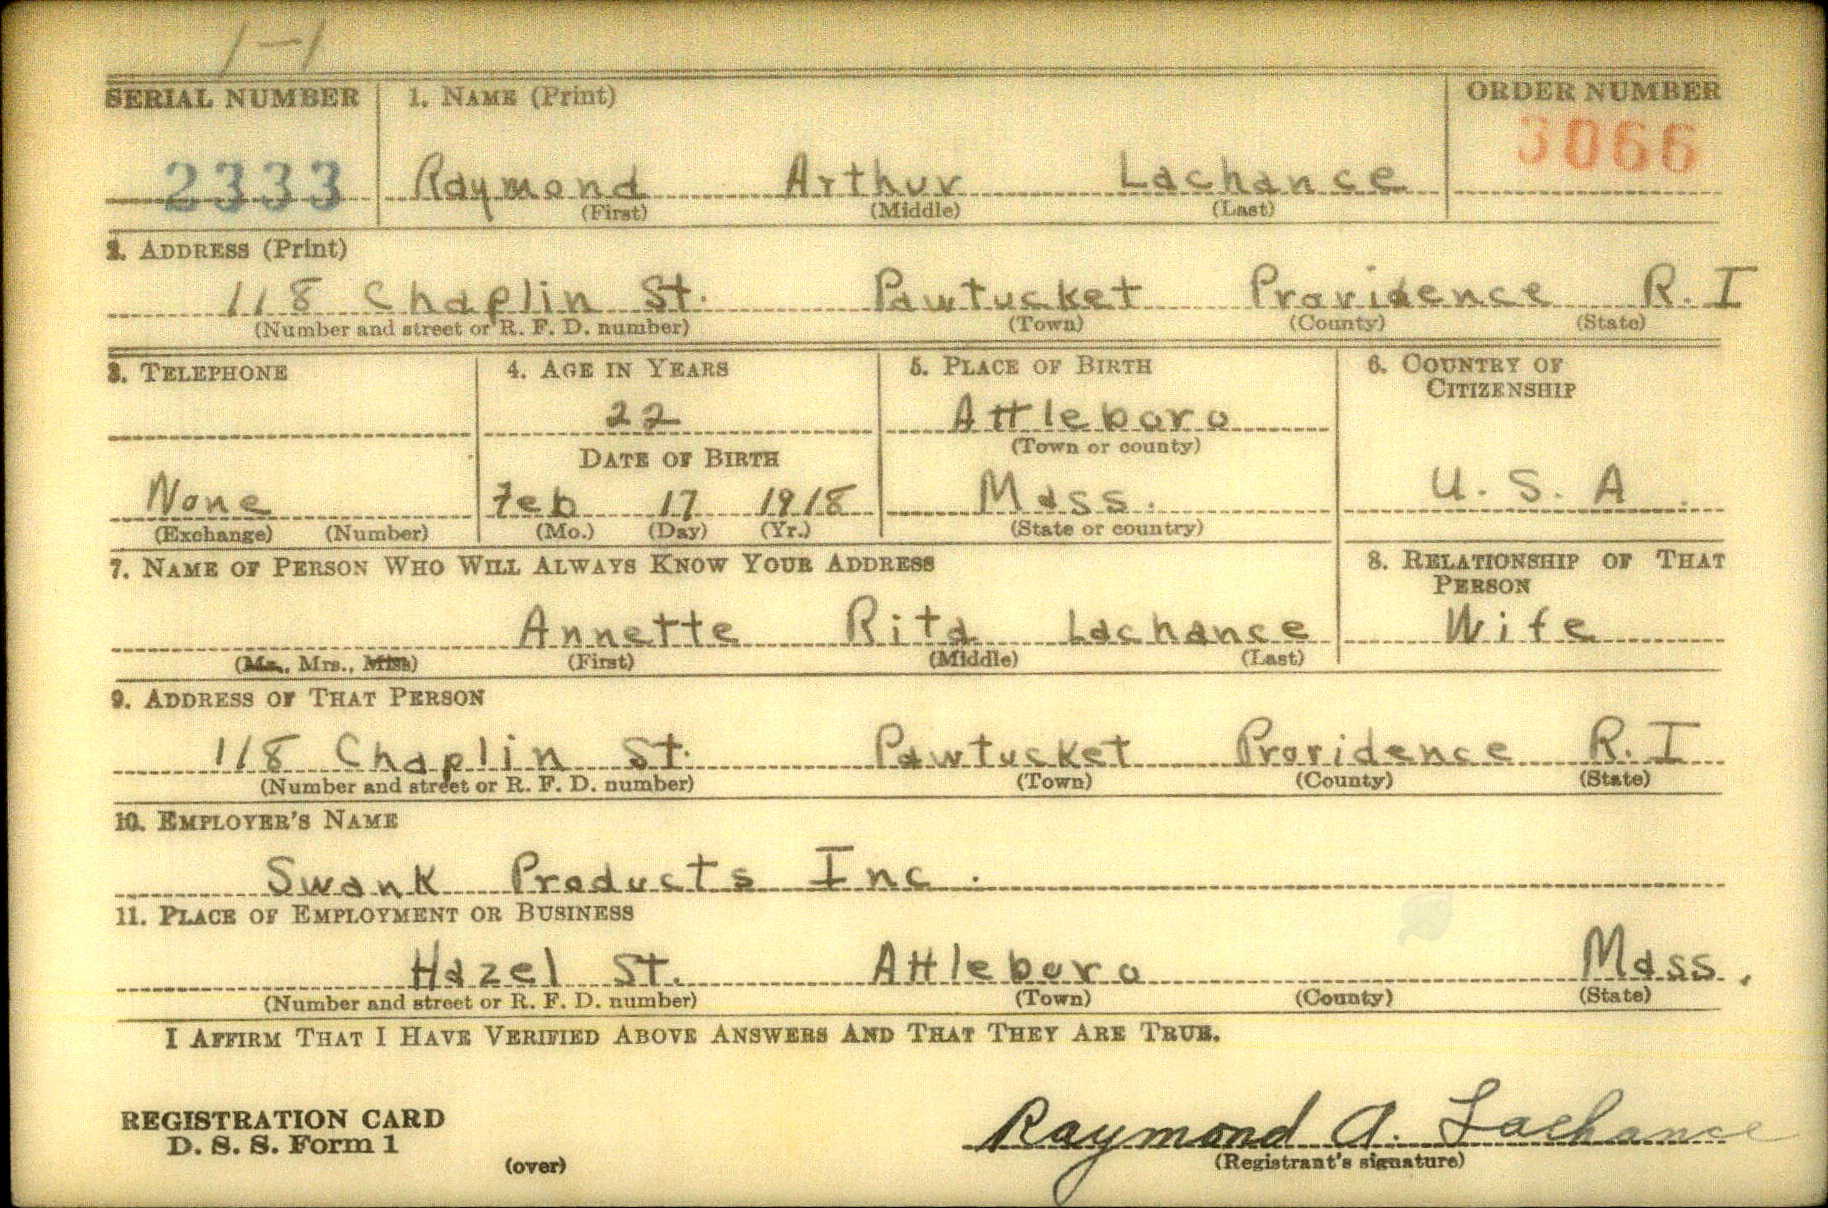 1-1
SERIAL NUMBER 1. NAME (Print) ORDER NUMBER
2333 Raymond Arthur Lachance 3066
(First) (Middle) (Last)
2. ADDRESS (Print)
118 Chaplin St. Pawtucket Providence R. I
(Number and street or R. F. D. number) (Town) (County) (State)
3. TELEPHONE 4. AGE IN YEARS 5. PLACE OF BIRTH 6. COUNTRY OF CITIZENSHIP
22 Attleboro
(Town or county)
DATE OF BIRTH
None Feb 17 1918 Mass. U. S. A.
(Exchange) (Number) (Mo.) (Day) (Yr.) (State or country)
7. NAME OF PERSON WHO WILL ALWAYS KNOW YOUR ADDRESS 8. RELATIONSHIP OF THAT PERSON
Annette Rita Lachance Wife
(Mr., Mrs., Miss) (First) (Middle) (Last)
9. ADDRESS OF THAT PERSON
118 Chaplin St. Pawtucket Providence R. I
(Number and street or R. F. D. number) (Town) (County) (State)
10. EMPLOYER'S NAME
Swank Products Inc.
11. PLACE OF EMPLOYMENT OR BUSINESS
Hazel St. Attleboro Mass.
(Number and street or R. F. D. number) (Town) (County) (State)
I AFFIRM THAT I HAVE VERIFIED ABOVE ANSWERS AND THAT THEY ARE TRUE.
REGISTRATION CARD
D. S. S. Form 1
(over)
Raymond A. Lachance
(Registrant's signature)